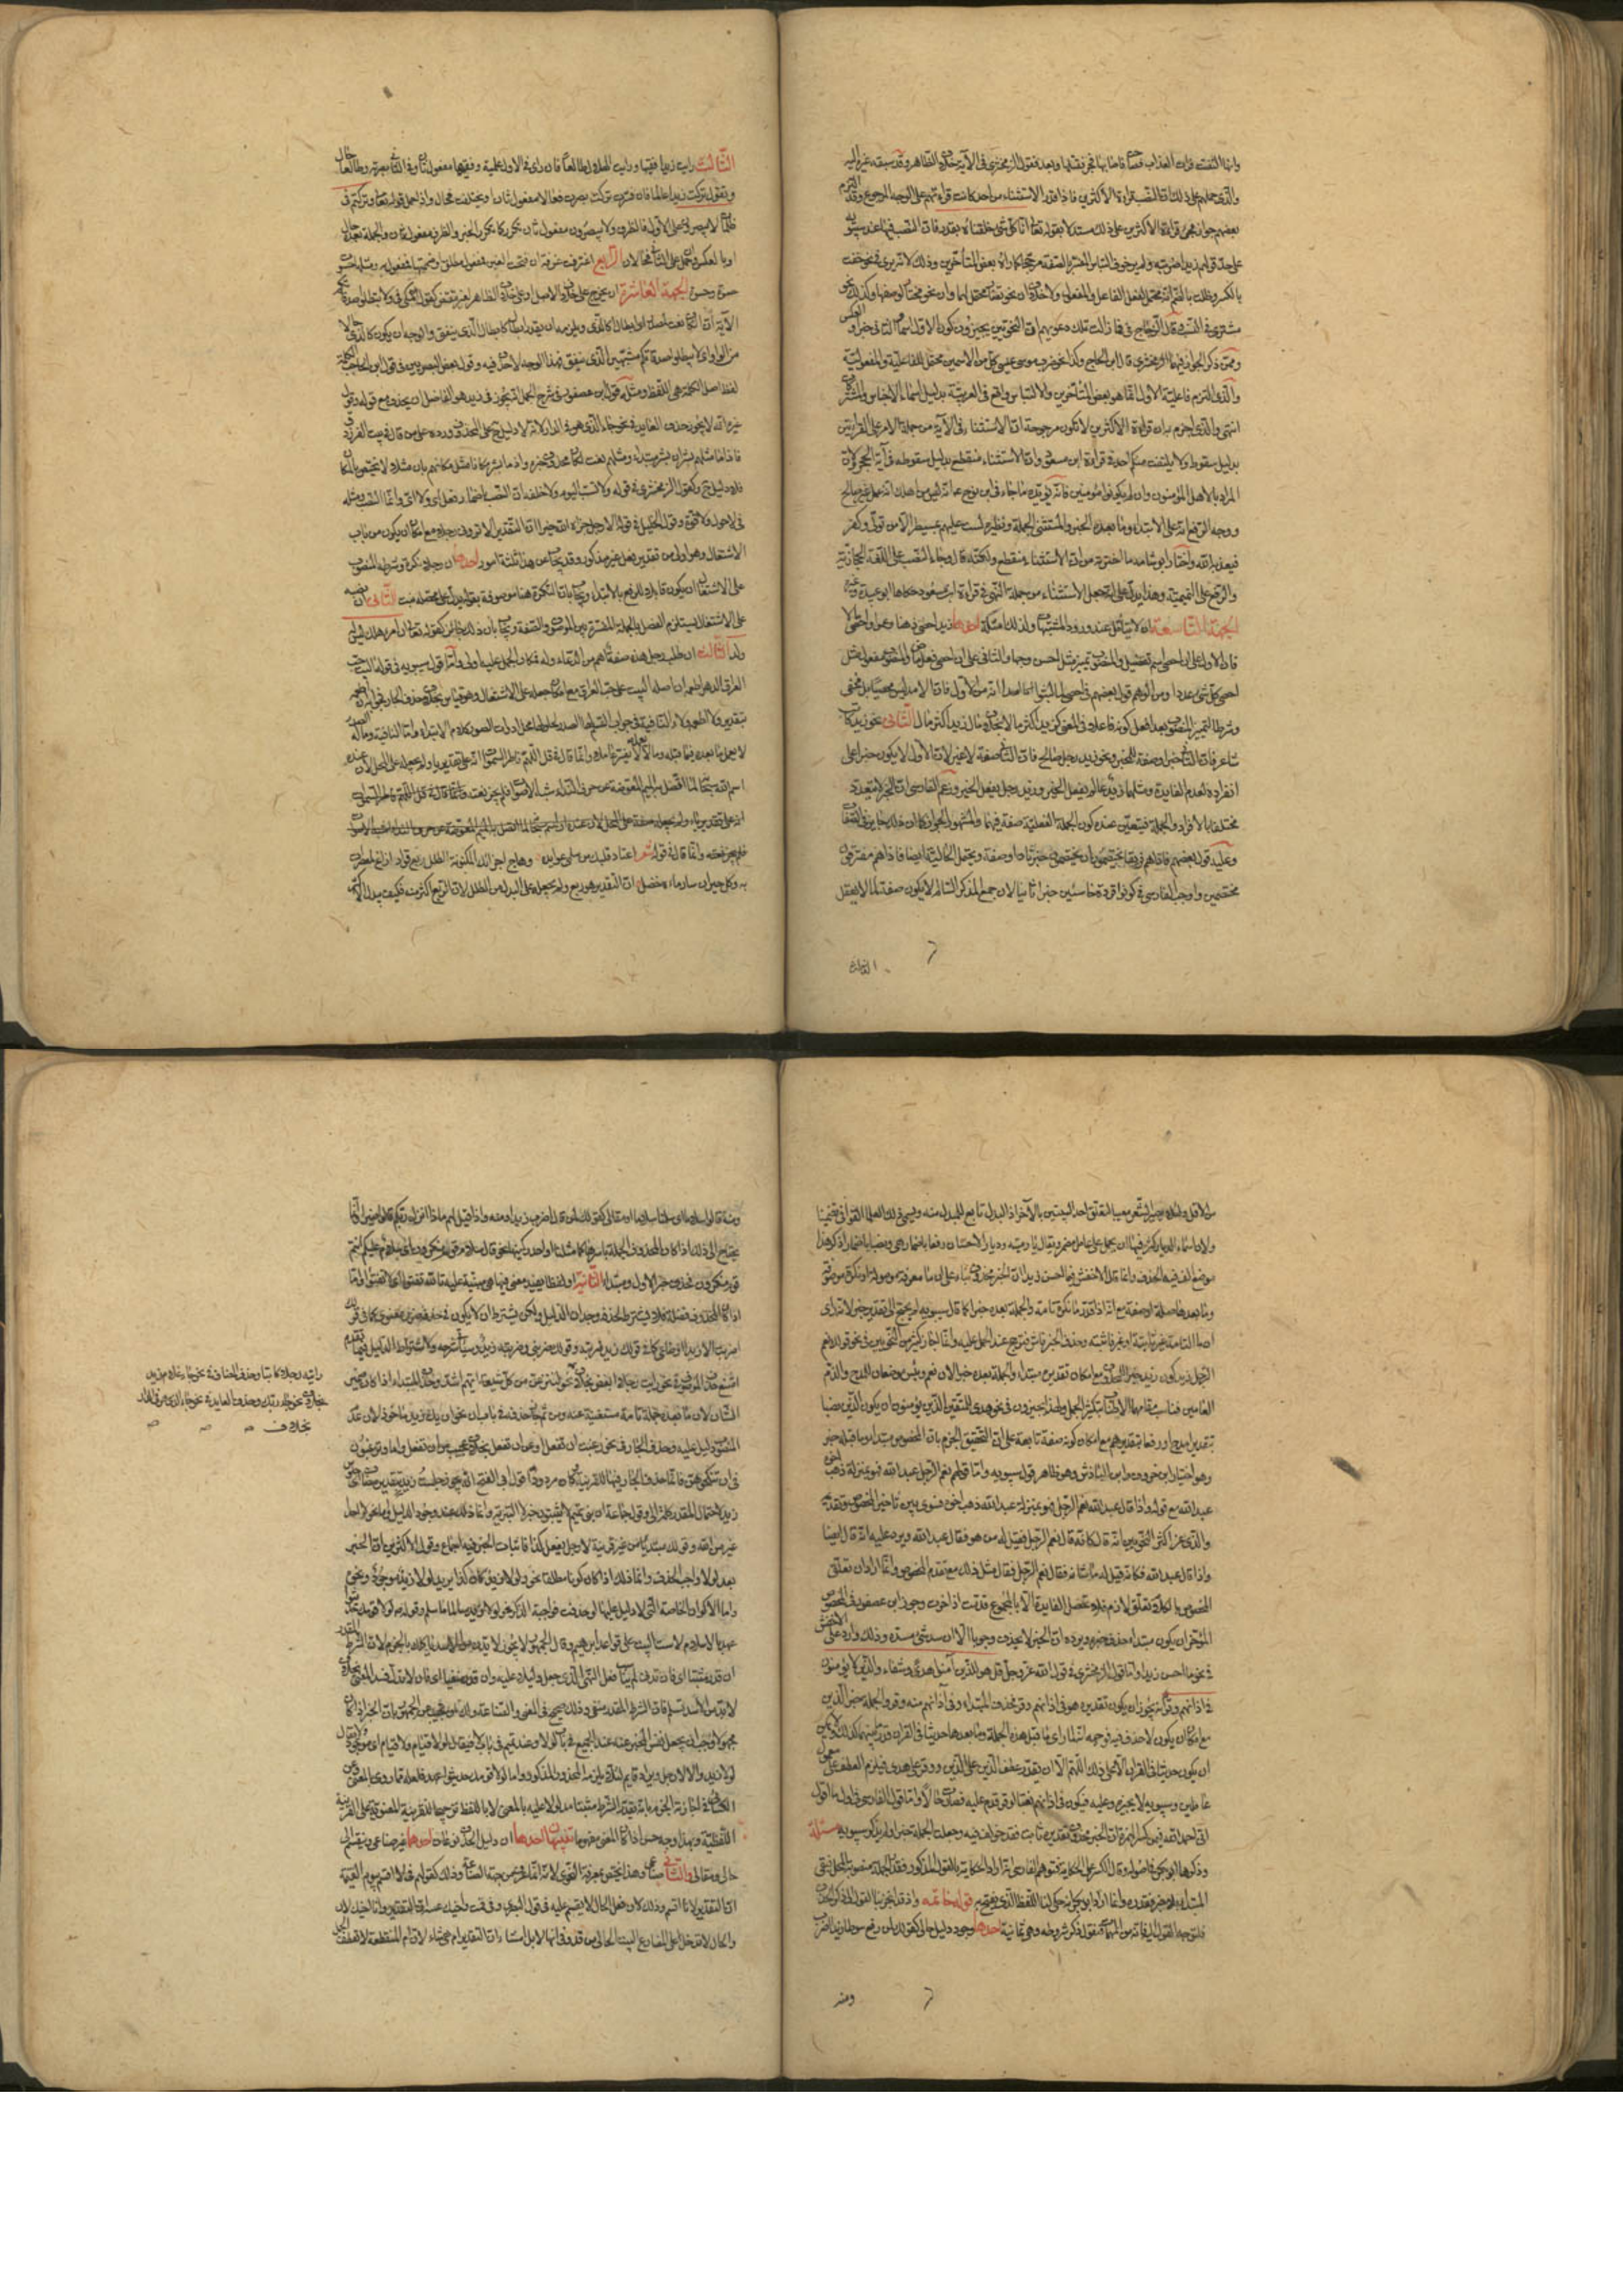 وانها التفتت فرات العذاب فصاحت فاصابها حجر فقتلها وبعد فقول الزمخشري في الآية خلاف الظاهر وقد سبقه غيره اليه
والذي حملهم على ذلك ان النصب قراءة الأكثرين فاذا قدر الاستثناء من احد كانت قراءتهم على الوجه المرجوح وقد التزم
بعضهم جواز مجيء قراءة الأكثرين على ذلك مستدلا بقوله تعالى انا كل شيء خلقناه بقدر فان النصب فيها عند سيبويه
على حد قولهم زيدا ضربته ولم ير خوف الباس المفسر بالصفة مرجحا كما رآه بعض المتأخرين وذلك لانه يرى في نحو خفت
بالكسر وطلت بالضم انه محتمل لفعل الفاعل والمفعول ولا خلاف ان نحو تضار محتمل لهما وان نحو مختار لوصفهما وكذلك نحو
مشترى في النسب وقال الزجاج في فما زالت تلك دعويهم ان النحويين يجيزون كون الاول اسما والثاني خبرا والعكس
وممن ذكر الجواز فيهما الزمخشري قال ابن الحاج وكذا نحو ضرب موسى عيسى كل من الاسمين محتمل للفاعلية والمفعولية
والذي التزم فاعلية الاول انما هو بعض المتأخرين والالتباس واقع في العربية بدليل اسماء الاجناس والمشتركات
انتهى والذي اجزم به ان قراءة الأكثرين لا تكون مرجوحة وان الاستثناء في الآية من جملة الامر على القراءتين
بدليل سقوط ولا يلتفت منكم احد في قراءة ابن مسعود وان الاستثناء منقطع بدليل سقوطه في آية الحجر ولان
المراد بالاهل المؤمنون وان لم يكونوا من اهل بيته
ووجه الرفع انه على الابتداء وما بعده الخبر والمستثنى الجملة ونظيره لست عليهم بمسيطر الا من تولى وكفر
فيعذبه الله واختار ابو شامة ما اخترته من ان الاستثناء منقطع ولكنه قال وجاء النصب على اللغة الحجازية
والرفع على التميمية وهذا يدل على انه جعل الاستثناء من جملة النهي في قراءة ابن مسعود حكاها ابو عبيدة وغيره
الجهة التاسعة ان لا يتأمل عند ورود المشتبهات ولذلك امثلة احدها زيد احصى ذهنا وعمرو احصى مالا
فان الاول على ان احصى اسم تفضيل والمنصوب تمييز مثل احسن وجها والثاني على ان احصى فعل ماض والمنصوب مفعول مثل
احصى كل شيء عددا ومن الوهم قول بعضهم في احصى لما لبثوا امدا انه من الاول فان الامد ليس محصيا بل محصى
وشرط التمييز المنصوب بعد افعل كونه فاعلا في المعنى كزيد اكثر مالا بخلاف مال زيد اكثر مال الثاني نحو زيد كاتب
شاعر فان الثاني خبر او صفة للخبر ونحو زيد رجل صالح فان الثاني صفة لا غير لان الاول لا يكون خبرا على
انفراده لعدم الفايدة ومثلهما زيد عالم يفعل الخير وزيد رجل يفعل الخير وزعم الفارسي ان الخبر لا يتعدد
مختلفا بالافراد والجملة فيتعين عنده كون الجملة الفعلية صفة فيهما والمشهور الجواز كما ان ذلك جايز في الصفات
وعليه قول بعضهم في فاذا هم فريقان يختصمون ان يختصمون خبر ثان او صفة ويحتمل الحالية ايضا اي فاذا هم مفترقون
مختصمين واوجب الفارسي في كونوا قردة خاسئين كون خاسئين خبرا ثانيا لان جمع المذكر السالم لا يكون صفة لما لا يعقل
الثالث
الثالث رايت زيدا فقيها ورايت الهلال طالعا فان راى في الاول علمية وفقيها مفعول ثان وفي الثاني بصرية وطالعا حال
وتقول تركت زيدا عالما فان فسرت تركت بصيرت فعالما مفعول ثان او بخلفت فحال واذا حمل قوله تعالى وتركهم في
ظلمات لا يبصرون على الاول فالظرف ولا يبصرون مفعول ثان تكرر كما يتكرر الخبر او الظرف مفعول ثان والجملة بعده حال
او بالعكس وان حمل على الثاني فحالان الرابع اغترف غرفة ان فتحت الغين فمفعول مطلق او ضممتها فمفعول به ومثلها حسوت
حسوة وحسوة الجهة العاشرة ان يخرج على خلاف الاصل او على خلاف الظاهر لغير مقتض كقول مكي في ولا تبطلوا صدقاتكم
الآية ان الكاف نعت لمصدر اي ابطالا كالذي ويلزمه ان يقدر ابطالا كابطال الذي ينفق والوجه ان يكون كالذي حالا
من الواو اي لا تبطلوا صدقاتكم مشبهين الذي ينفق فهذا الوجه لا حذف فيه وقول بعض العصريين في قول ابن الحاجب الكلمة
لفظ اصل الكلمة هي اللفظ ومثله قول ابن عصفور في شرح الجمل انه يجوز في زيد هو الفاضل ان يحذف مع قوله وقول
غيره انه لا يجوز حذف العايد في نحو جاء الذي هو في الدار لانه لا دليل حينئذ على المحذوف ورده على من قال في بيت الفرزدق
فاذا ما مثلهم بشر ان بشر مبتدأ ومثلهم نعت لمكان محذوف خبره
على الاشتغال ان يكون قابلا للرفع بالابتداء ويجاب بان النكرة هنا موصوفة بقوله يدل على محصلة تبيت الثاني ان نصبه
على الاشتغال يستلزم الفصل بالجملة المفسرة بين الموصوف والصفة ويجاب بان ذلك جايز كقوله تعالى ان امرؤ هلك ليس له
ولد الثالث ان طلب رجل هذه صفته اهم من الدعاء له فكان الحمل عليه اولى واما قول سيبويه في قوله آليت حب
العراق الدهر اطعمه ان اصله آليت على حب العراق مع امكان جعله على الاشتغال وهو قياسي بخلاف حذف الجار فجوابه ان اطعمه
بتقدير لا اطعمه ولا النافية في جواب القسم لها الصدر لحلولها محل ادوات الصدور كلام الابتداء وما النافية وما له الصدر
لا يعمل ما بعده فيما قبله وما لا يعمل لا يفسر عاملا وانما قال في قل اللهم فاطر السموات انه على تقدير يا ولم يجعله على المحل لان عنده
اسم الله سبحانه لما اتصل به الميم المعوضة عن حرف النداء شبه الاصوات فلم يجز نعته
فلم يجز نعته وانما قال في قوله شعر اعتاد قلبك من سلمى عوايده وهاج احزانك المكنونة الطلل ربع قواء اذاع المعصرات
به وكل حيران سار ماؤه خضل ان التقدير هو ربع ولم يجعله على البدل من الطلل لان الربع اكثر منه فكيف يبدل الاكثر
من الاقل ولئلا يصير الشعر معيبا لتعلق احد البيتين بالآخر اذ البدل تابع للمبدل منه ويسمي ذلك علماء القوافي تضمينا
ولان اسماء الديار كثر فيها ان تحمل على عامل مضمر يقال دار مية وديار الاحباب رفعا باضمار هي ونصبا باضمار اذكر فهذا
موضع الف فيه الحذف وانما قال الاخفش في ما احسن زيدا ان الخبر محذوف بناء على ان ما معرفة موصولة او نكرة موصوفة
وما بعدها صلة او صفة مع انه اذا قدر ما نكرة تامة والجملة بعده خبرا كما قال سيبويه لم يحتج الى تقدير خبر لانه راى
ان ما التامة غير ثابتة او غير فاشية وحذف الخبر فاش فترجح عنده الحمل عليه وانما اجاز كثير من النحويين في نحو قولك نعم
الرجل زيد كون زيد خبر المحذوف مع امكان تقديره مبتدأ والجملة بعده خبرا لان نعم وبئس موضوعان للمدح والذم
العامين فناسب مقامهما الاطناب بتكثير الجمل ولهذا يجيزون في نحو هدى للمتقين الذين يؤمنون ان يكون الذين نصبا
بتقدير امدح او رفعا بتقدير هم مع امكان كونه صفة تابعة على ان التحقيق الجزم بان المخصوص مبتدأ وما قبله خبر
وهو اختيار ابن خروف وابن الباذش وهو ظاهر قول سيبويه واما قولهم نعم الرجل عبد الله فهو بمنزلة ذهب اخوه
عبد الله مع قوله واذا قال عبد الله نعم الرجل فهو بمنزلة عبد الله ذهب اخوه فسوى بين تاخير المخصوص وتقديمه
والذي غر اكثر النحويين انه قال كانه قال نعم الرجل فقيل له من هو فقال عبد الله ويرد عليه انه قال ايضا
واذا قال عبد الله فكانه قيل له ما شانه فقال نعم الرجل فقال مثل ذلك مع تقدم المخصوص وانما اراد ان تعلق
المخصوص بالكلام تعلق لازم فلا تحصل الفايدة الا بالمجموع قدمت او اخرت وجوز ابن عصفور في المخصوص
المؤخر ان يكون مبتدأ حذف خبره ويرده ان الخبر لا يحذف وجوبا الا ان سد شيء مسده وذلك وارد على الاخفش
في نحو ما احسن زيدا واما قول الزمخشري في قول الله عز وجل قل هو للذين آمنوا هدى وشفاء والذين لا يؤمنون
في آذانهم وقر انه يجوز ان يكون تقديره هو في آذانهم وقر فحذف المبتدأ او في آذانهم منه وقر والجملة خبر الذين
مع امكان ان يكون لا حذف فيه فوجهه انه لما راى ما قبل هذه الجملة وما بعدها حديثا في القرآن قدر ما بينهما كذلك ولا يمكن
ان يكون حديثا في القرآن الا على ذلك اللهم الا ان يقدر عطف الذين على الذين ووقر على هدى فيلزم العطف على معمولي
عاملين وسيبويه لا يجيزه وعليه فيكون في آذانهم نعتا لوقر قدم عليه فصار حالا واما قول الفارسي في اول ما اقول
اني احمد الله فيمن كسر الهمزة ان الخبر محذوف تقديره ثابت فقد خولف فيه وجعلت الجملة خبرا ولم يذكر سيبويه مسئلة
وذكرها ابو بكر في اصوله وقال الكسر على الحكاية فتوهم الفارسي انه اراد الحكاية بالقول المذكور فقدر الجملة منصوبة المحل فبقي
المبتدأ بلا خبر فقدره وانما اراد ابو بكر انه حكى لنا اللفظ الذي يفتتح به قوله خاتمة واذ قد انجر بنا القول الى ذكر الحذف
فلنوجه القول اليه فانه من المهمات فنقول ذكر شروطه وهي ثمانية احدها وجود دليل حالي كقولك لمن رفع سوطا زيدا باضمار اضرب
ومنه
ومنه قالوا سلاما اي سلمنا سلاما او مقالي كقولك لمن قال من اضرب زيدا ومنه واذا قيل لهم ماذا انزل ربكم قالوا خيرا وانما
يحتاج الى ذلك اذا كان المحذوف الجملة باسرها كما مثلنا او احد ركنيها نحو قال سلام قوم منكرون اي سلام عليكم انتم
قوم منكرون فحذف خبر الاولى ومبتدأ الثانية او لفظا يفيد معنى فيها هي مبنية عليه نحو تالله تفتؤ اي لا تفتؤ واما
اذا كان المحذوف فضلة فلا يشترط لحذفه وجدان الدليل ولكن يشترط ان لا يكون في حذفه ضرر معنوي كما في قولك
ما ضربت الا زيدا او صناعي كما في قولك زيد ضربته وقولك ضربني وضربته زيد وسيأتي شرحه ولاشتراط الدليل فيما تقدم
امتنع حذف الموصوف في نحو رايت رجلا ابيض بخلاف نحو
رايته رجلا كاتبا وحذف المضاف في نحو جاء غلام زيد
بخلاف نحو وجاء ربك وحذف العايد في نحو جاء الذي هو في الدار
بخلاف
نحو لننزعن من كل شيعة ايهم اشد وحذف المبتدأ اذا كان ضمير
الشان لان ما بعده جملة تامة مستغنية عنه ومن ثم جاز حذفه في باب ان نحو ان بك زيد ماخوذ لان عدم
المنصوب دليل عليه وحذف الجار في نحو رغبت في ان تفعل او عن ان تفعل بخلاف عجبت من ان تفعل واما وترغبون
ان تنكحوهن فانما حذف الجار فيها لقرينة
زيد لاحتمال ان المقدر كلمة الى وقول جماعة ان بني تميم لا يثبتون خبر لا التبرئة وانما ذلك عند وجود الدليل واما نحو لا احد
اغير من الله وقولك مبتديا من غير قرينة لا رجل يفعل كذا فاثبات الخبر فيه اجماع وقول الاكثرين ان الخبر
بعد لولا واجب الحذف وانما ذلك اذا كان كونا مطلقا نحو لولا زيد لكان كذا يريد لولا زيد موجود ونحوه
واما الاكوان الخاصة التي لا دليل عليها لو حذفت فواجبة الذكر نحو لولا زيد سالمنا ما سلم وقوله عم لولا قومك حديثو
عهد بالاسلام لاسست البيت على قواعد ابراهيم وقال الجمهور لا يجوز لا تدن من الاسد ياكلك بالجزم لان الشرط المقدر
ان قدر مثبتا اي فان تدن لم يناسب فعل النهي الذي جعل دليلا عليه وان قدر منفيا اي فان لا تدن فسد المعنى بخلاف
لا تدن من الاسد تسلم فان الشرط المقدر منفي وذلك صحيح في المعنى والصناعة ولك ان تجيب عن الجمهور بان الخبر اذا كان
مجهولا وجب ان يجعل نفس المخبر عنه عند الجميع في باب لولا وعند تميم في باب لا فيقال لولا قيام زيد ولا قيام اي موجود ولا يقال
لولا زيد ولا رجل ويراد قايم لئلا يلزم المحذور المذكور واما لولا قومك حديثو عهد فلعله مما روي بالمعنى وعن
الكسائي في اجازته الجزم بانه يقدر الشرط مثبتا مدلولا عليه بالمعنى لا باللفظ ترجيحا للقرينة المعنوية على القرينة
اللفظية وهذا وجه حسن اذا كان المعنى مفهوما تنبيهان احدهما ان دليل الحذف نوعان احدهما غير صناعي وينقسم الى
حالي ومقالي والثاني صناعي وهذا يختص بمعرفته النحوي لانه انما عرف من جهة الصناعة وذلك كقولهم في لا اقسم بيوم القيمة
ان التقدير لانا اقسم وذلك لان فعل الحال لا يقسم عليه في قول البصريين وفي قمت واصك عينه التقدير وانا اصك لان
واو الحال لا تدخل على المضارع المثبت الخالي من قد وفي انها لابل ام شاء ان التقدير ام هي شاء لان ام المنقطعة لا تعطف الا الجمل